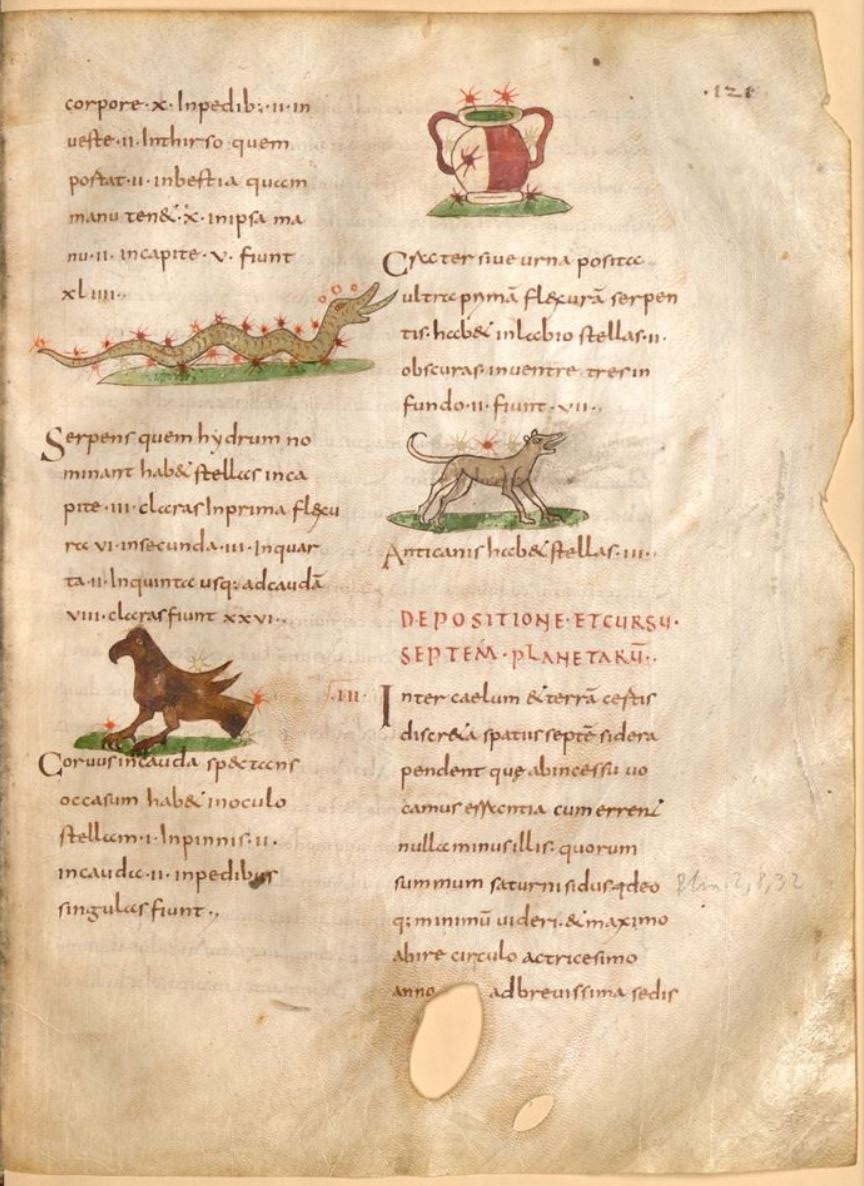 ·121·
corpore·x· Inpedib;·II·in
ueste·II·Inthirso quem
portat·II·inbestia quam
manu ten&·x·inipsa ma
nu·II·incapite·v·fiunt
xLIIII·
Serpens quem hydrum no
minant hab& stellas inca
pite·III·claras Inprima flexu
ra VI·insecunda·III·Inquar
ta·II·Inquinta usq; adcaudā
VIII·claras fiunt xxVI·
Coruus incauda spectans
occasum hab& inoculo
stellam·I·Inpinnis·II·
incauda·II·inpedibus
singulas fiunt·,
Crater siue urna posita
ultra primā flexurā serpen
tis·hab& inlabio stellas·II·
obscuras·inuentre tres in
fundo·II·fiunt·VII·
Anticanis hab& stellas·III·
DEPOSITIONE·ETCURSU·
SEPTEM·PLANETARŪ·
·III· Inter caelum &terrā certis
discr&a spatiis septē sidera
pendent quę abincessu uo
camus errantia cum errent
nulla minus illis·quorum
summum saturni sidus·ideo
q; minimū uideri·&maximo
abire circulo actricesimo
anno adbreuissima sedis
Plin. 2, 8, 32